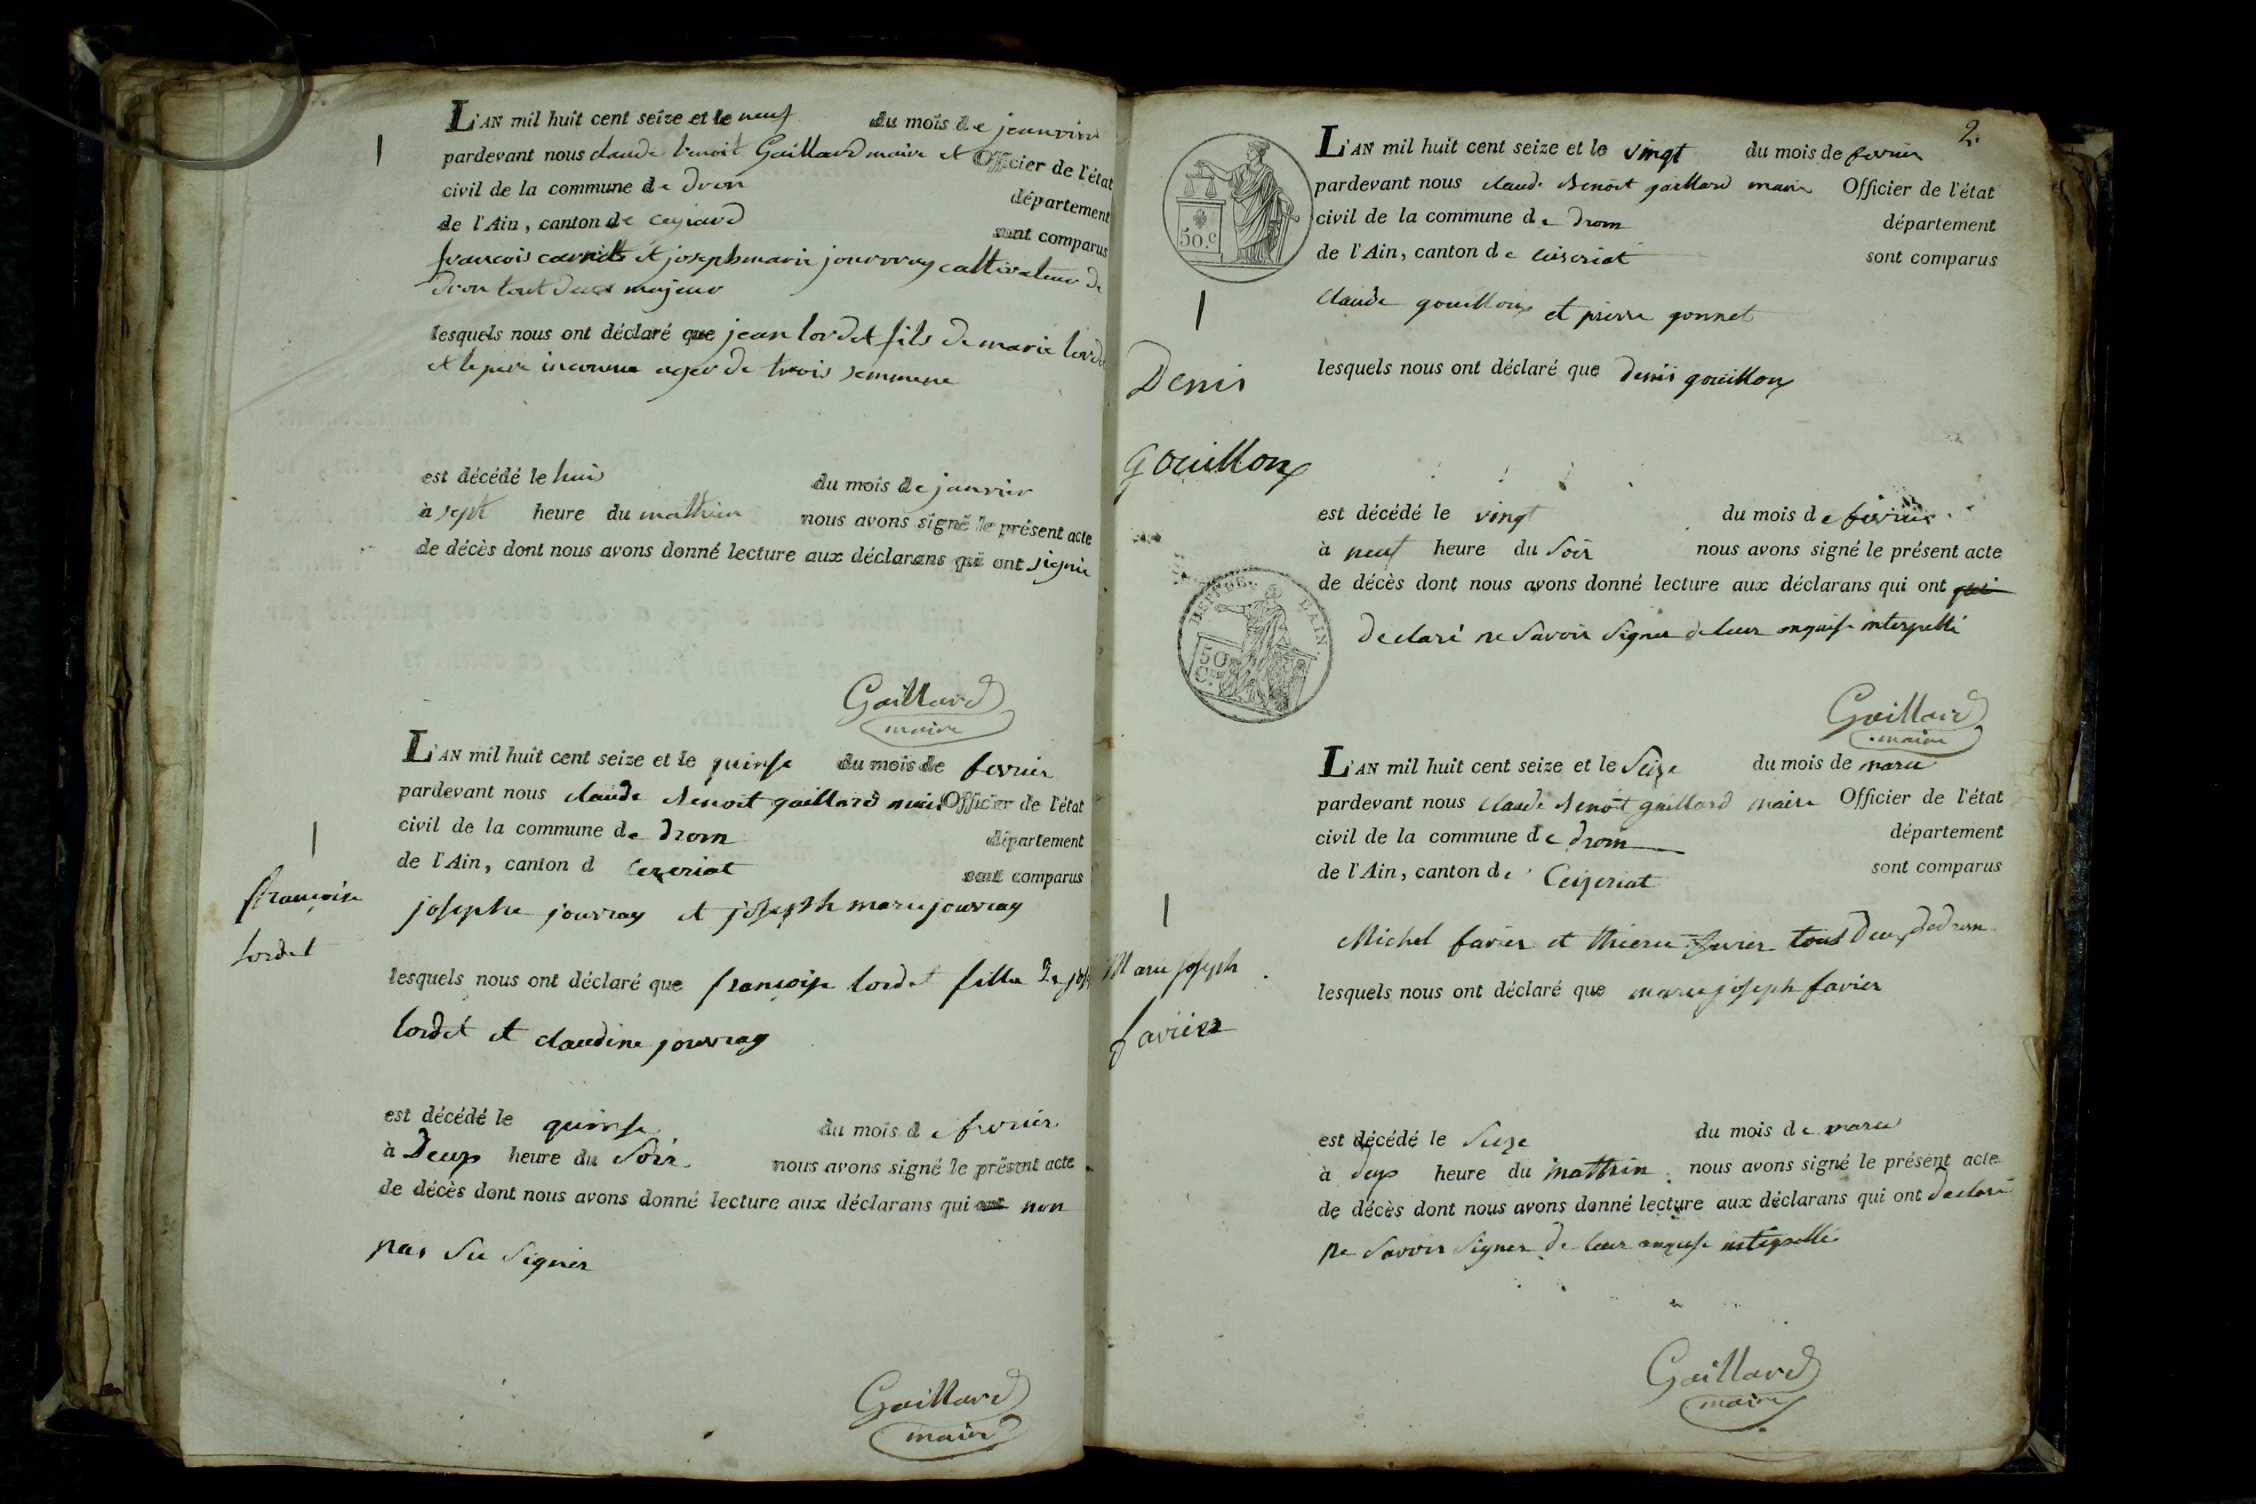 L'AN mil huit cent seize et le neuf du mois de jeanvier
pardevant nous claude benoit Gaillard maire et Officier de l'état
civil de la commune de dron département
de l'Ain, canton de sont comparus
francois et joseph marie jouvray cultivateur de
dron tout deux majeur
lesquels nous ont déclaré que jean lordet fils de marie lordet
et le pere inconnue ager de trois semmene
est décédé le huis du mois de janvier
à sept heure du mathin nous avons signé le présent acte
de décès dont nous avons donné lecture aux déclarans qui ont signie
Gaillard
maire
L'AN mil huit cent seize et le quinse du mois de fevrier
pardevant nous claude benoit gaillard maire Officier de l'état
civil de la commune de drom département
de l'Ain, canton d cezeriat sont comparus
josephe jouvray et joseph marie jouvray
françoise
lordet
lesquels nous ont déclaré que françoise lordet fille de
lordet et claudine jouvray
est décédé le quinse du mois de fevrier
à Deux heure du Soir nous avons signé le présent acte
de décès dont nous avons donné lecture aux déclarans qui ont non
pas Su Signer
Gaillard
maire
2.
L'AN mil huit cent seize et le vingt du mois de fevrier
pardevant nous claude benoit gaillard maire Officier de l'état
civil de la commune de drom département
de l'Ain, canton de ceiseriat sont comparus
50.c
claude gouilloux et pierre gonnet
Denis
gouilloux
lesquels nous ont déclaré que denis gouilloux
est décédé le vingt du mois de fevrier
à neuf heure du Soir nous avons signé le présent acte
de décès dont nous avons donné lecture aux déclarans qui ont qui
declaré ne Savoir Signer de leur enquise interpellé
50
Gaillard
maire
L'AN mil huit cent seize et le Seize du mois de mars
pardevant nous claude benoit gaillard maire Officier de l'état
civil de la commune de drom département
de l'Ain, canton de Ceizeriat sont comparus
Michel favier et favier tous deux de drom
Marie joseph
favier
lesquels nous ont déclaré que marie joseph favier
est décédé le Seize du mois de mars
à deux heure du mathin nous avons signé le présent acte
de décès dont nous avons donné lecture aux déclarans qui ont declaré
ne Savoir Signer de leur enquise interpellé
Gaillard
maire